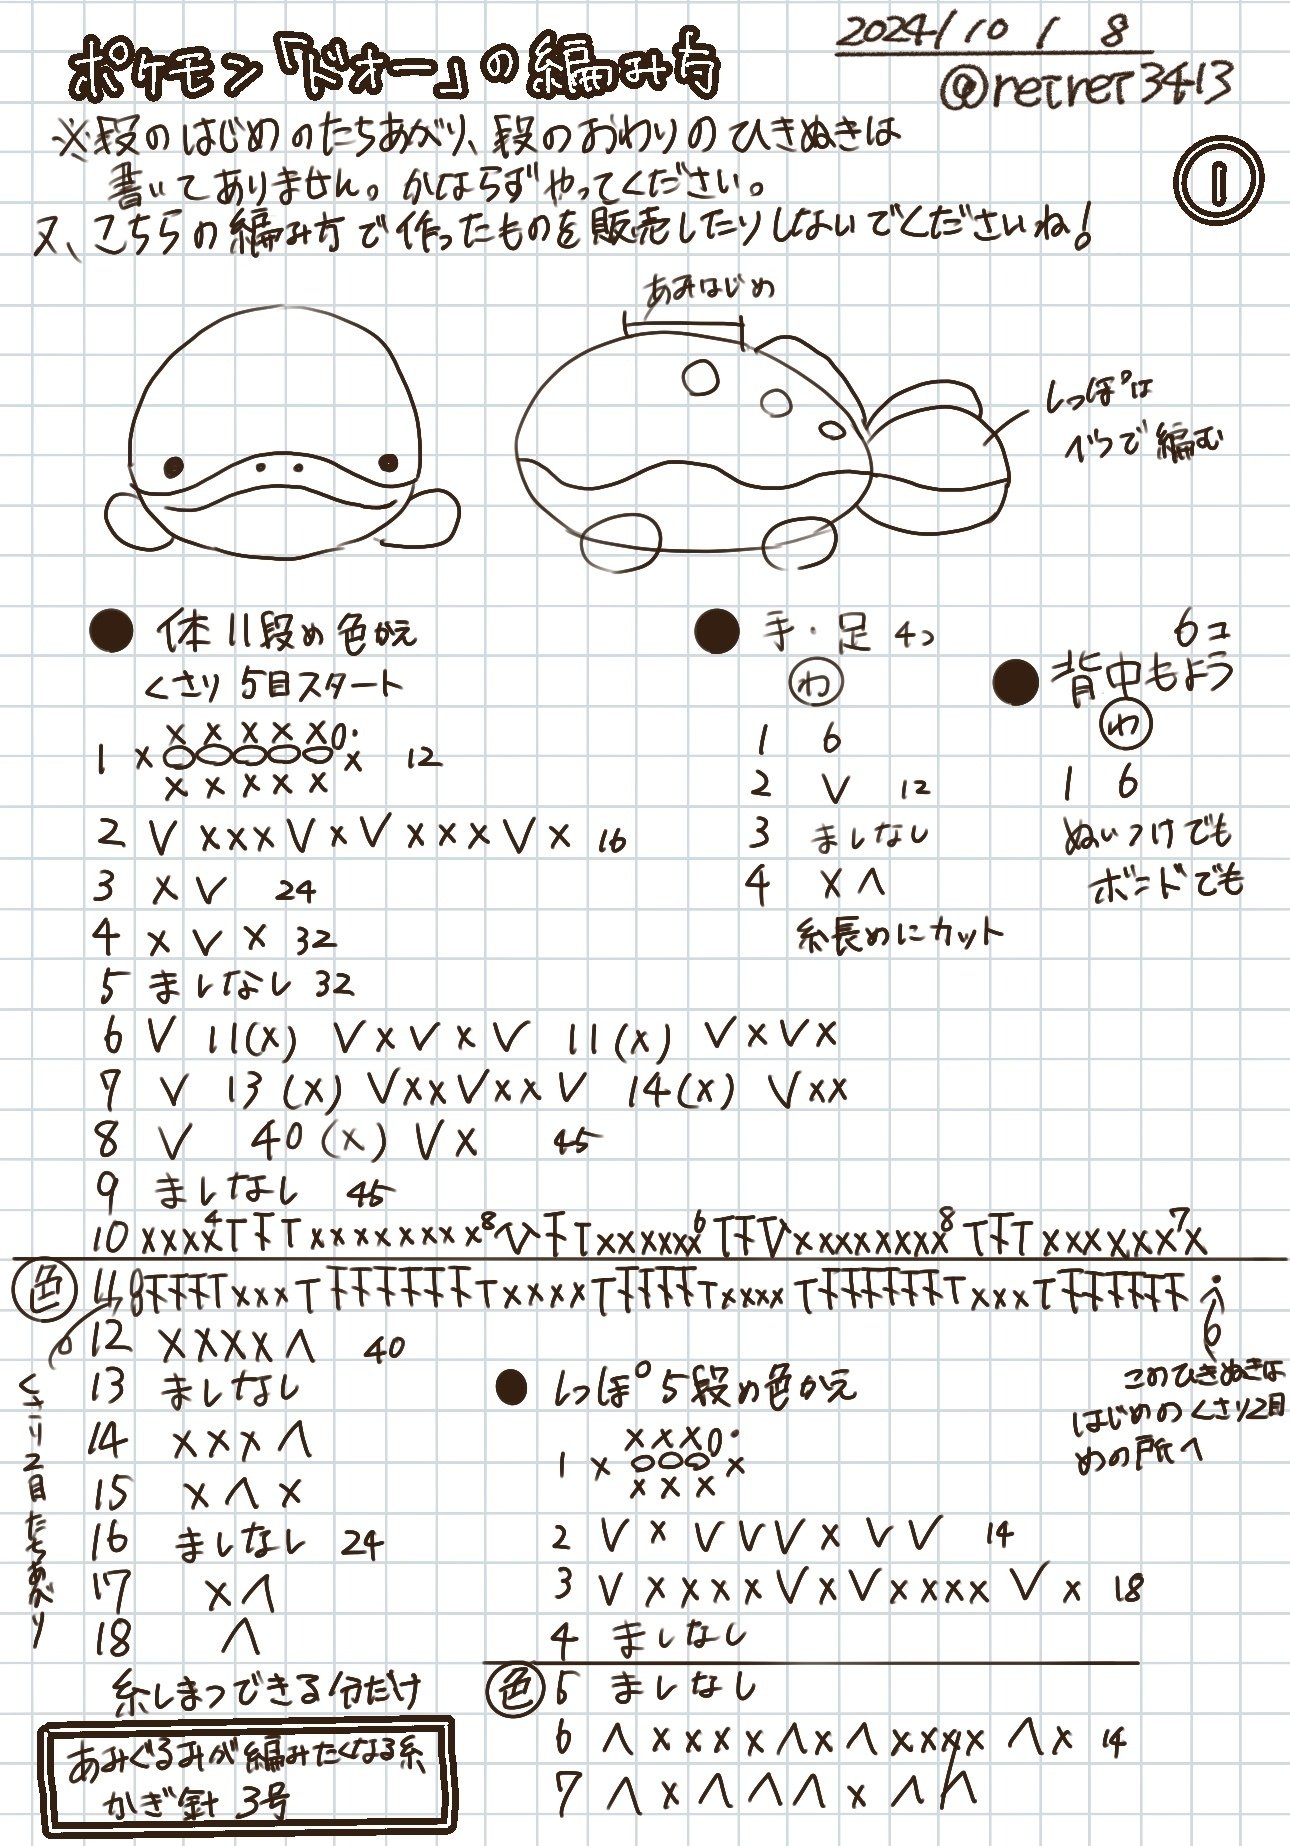 ポケモン「ドオー」の編み方
2024/10/8
@retret3413
①
※段のはじめのたちあがり、段のおわりのひきぬきは
書いてありません。かならずやってください。
又、こちらの編み方で作ったものを販売したりしないでくださいね!
あみはじめ
しっぽは
べつで編む
● 体 11段め色かえ
くさり 5目スタート
x x x x x 0・
1 x ○○○○○ x 12
x x x x x
2 V x x x V x V x x x V x 16
3 x V 24
4 x V x 32
5 ましなし 32
6 V 11(x) V x V x V 11(x) V x V x
7 V 13(x) V x x V x x V 14(x) V x x
8 V 40(x) V x 45
9 ましなし 45
● 手・足 4つ
わ
1 6
2 V 12
3 ましなし
4 x ∧
糸長めにカット
6コ
● 背中もよう
わ
1 6
ぬいつけでも
ボンドでも
色
12 x x x x ∧ 40
13 ましなし
14 x x x ∧
15 x ∧ x
16 ましなし 24
17 x ∧
18 ∧
糸しまつできる分だけ
くさり2目たちあがり
このひきぬきは
はじめのくさり2目
めの所へ
● しっぽ 5段め色かえ
x x x 0・
1 x ○○○ x
x x x
2 V x V V V x V V 14
3 V x x x x V x V x x x x V x 18
4 ましなし
色 5 ましなし
6 ∧ x x x x ∧ x ∧ x x x x ∧ x 14
7 ∧ x ∧ ∧ ∧ x ∧ ∧
あみぐるみが編みたくなる糸
かぎ針 3号